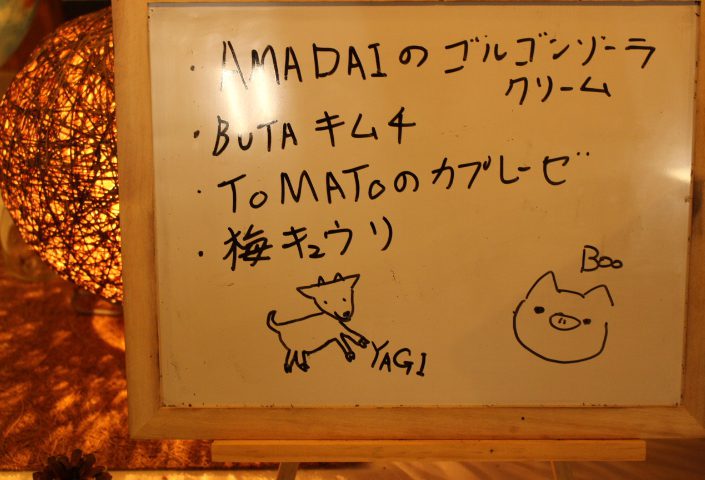 ・AMADAIのゴルゴンゾーラ
クリーム
・BUTAキムチ
・ToMAToのカプレーゼ
・梅キュウリ
Boo
YAGI